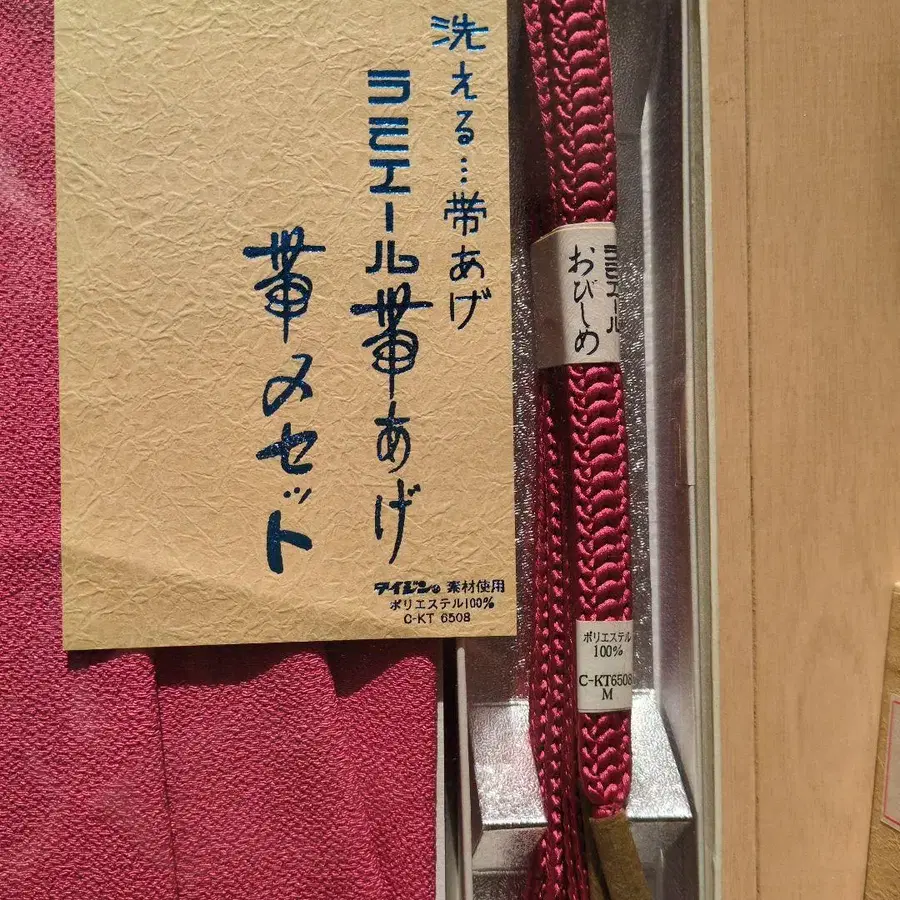 洗える…帯あげ
ラミエール帯あげ
帯〆セット
テイジン® 素材使用
ポリエステル100%
C-KT 6508
ラミエール
おびじめ
ポリエステル
100%
C-KT6508
M